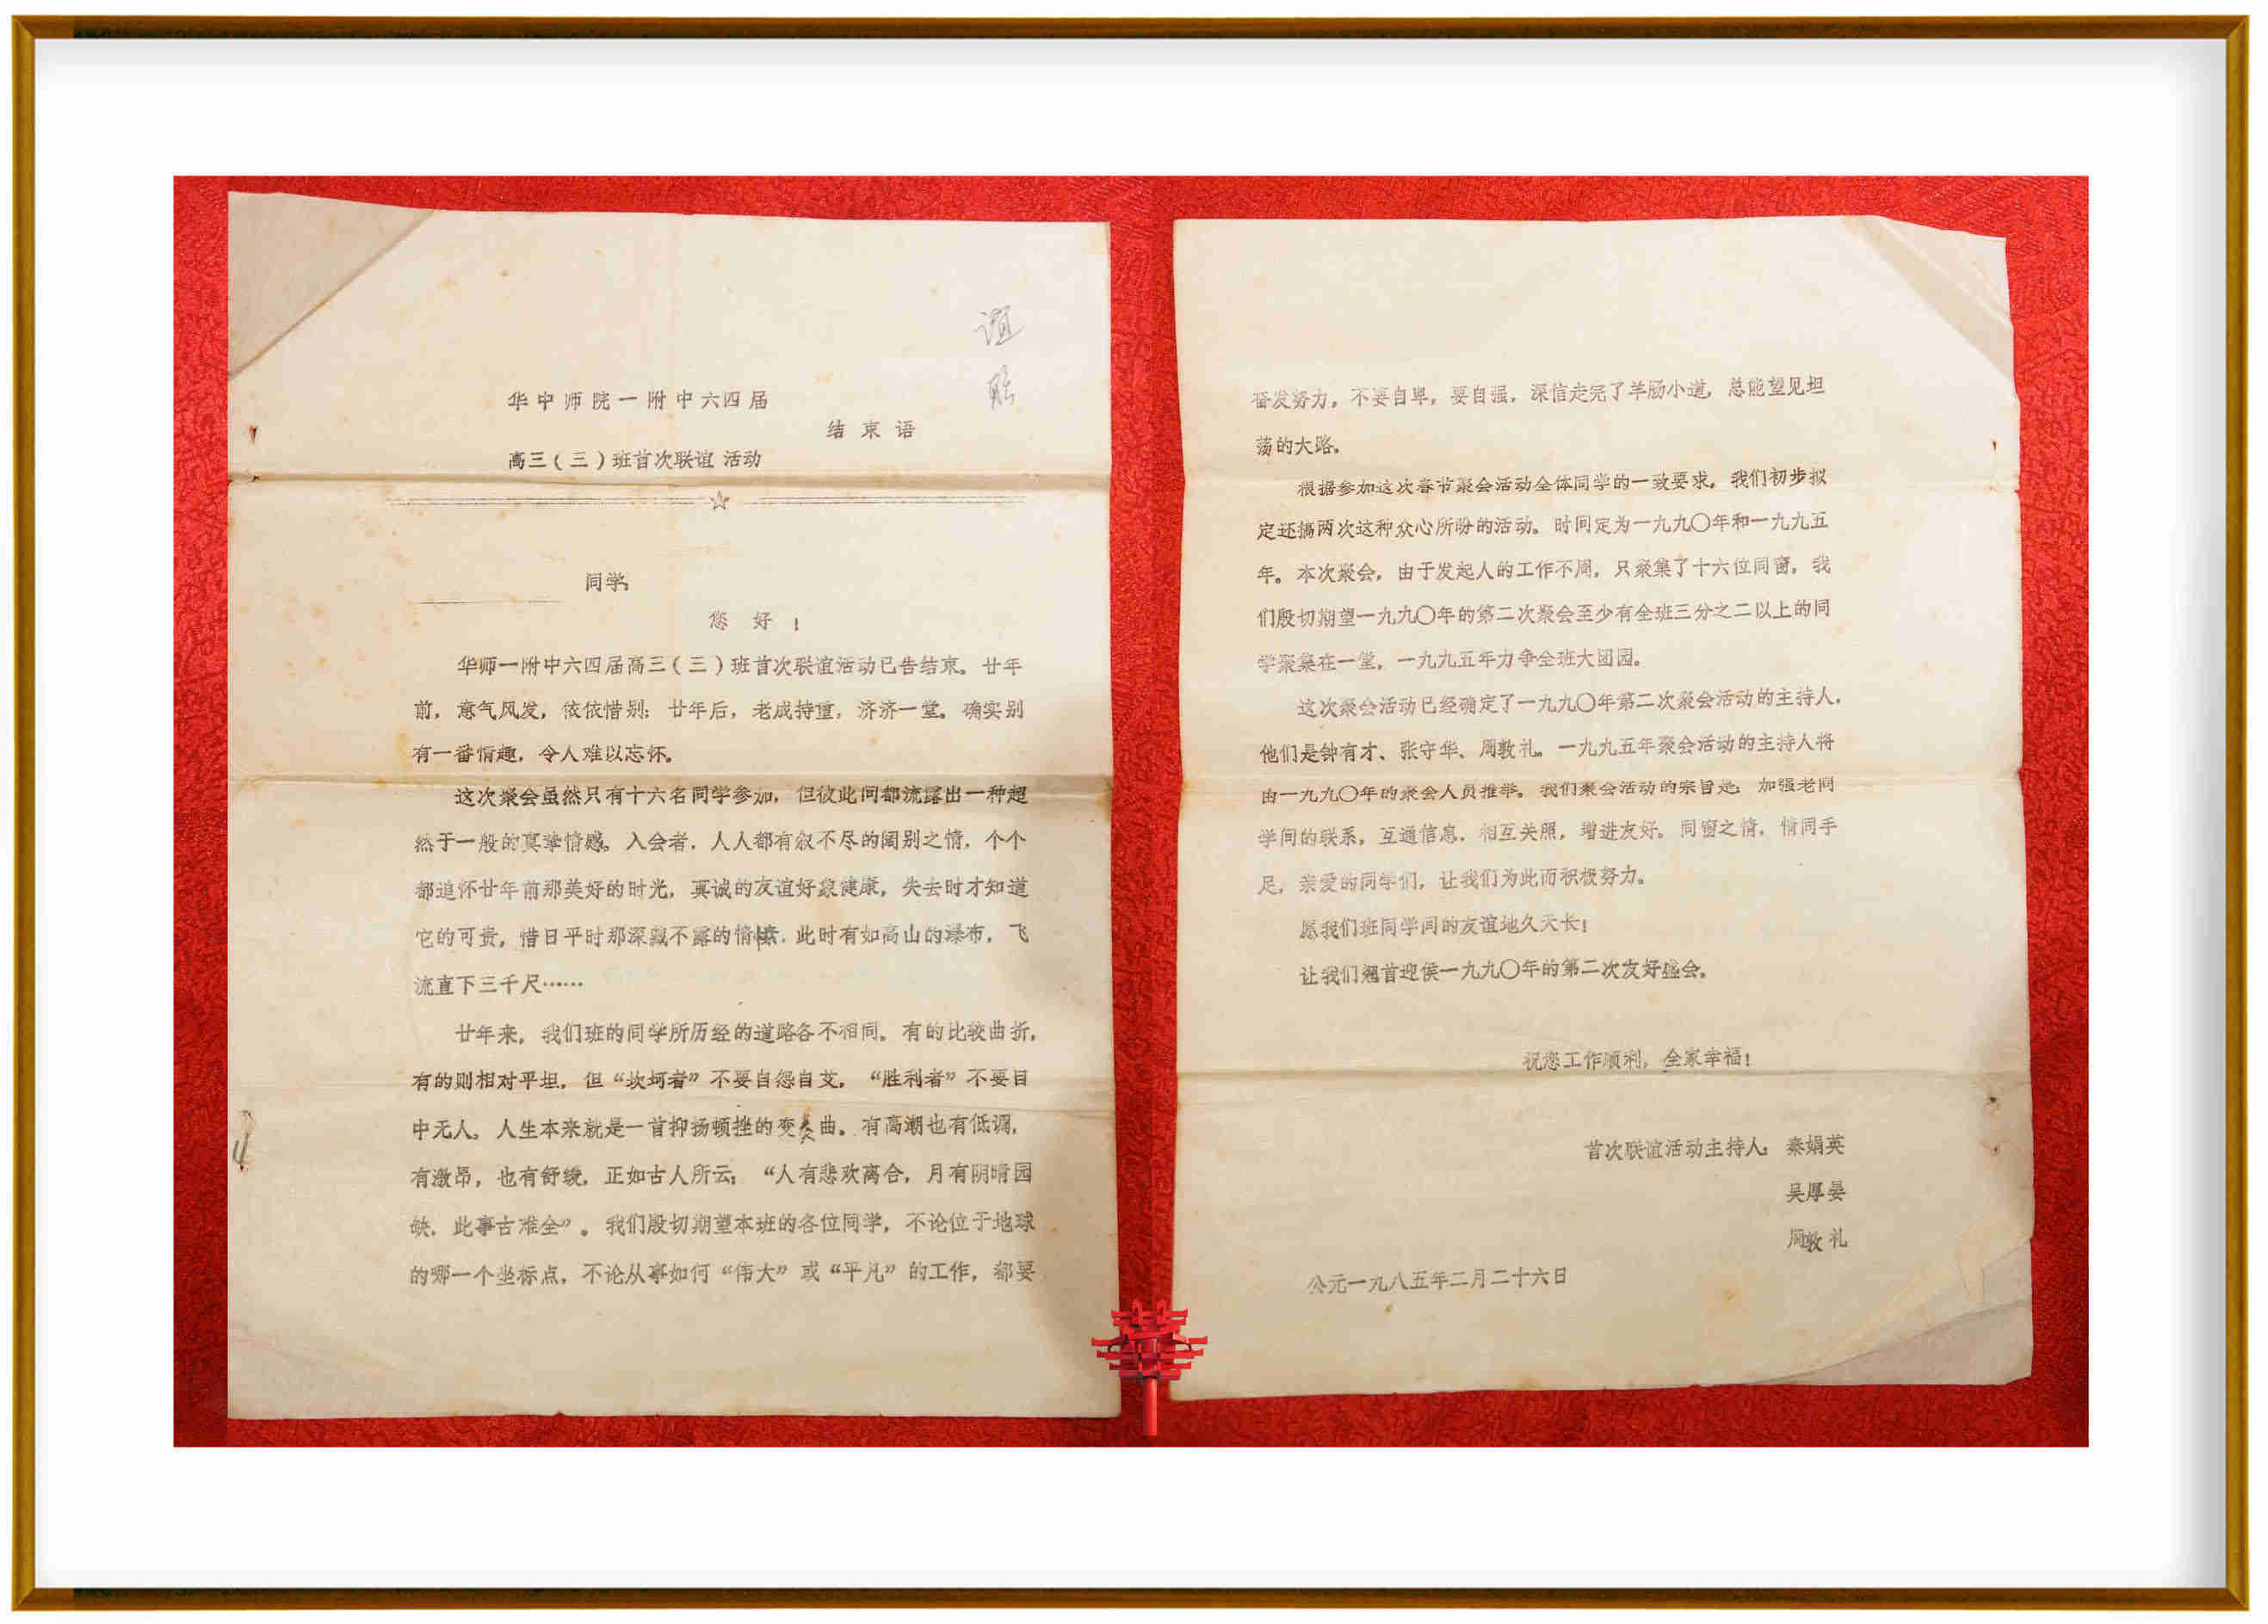 谊
联
华中师院一附中六四届
结束语
高三(三)班首次联谊活动
同学:
您好!
华师一附中六四届高三(三)班首次联谊活动已告结束。廿年
前,意气风发,依依惜别;廿年后,老成持重,济济一堂。确实别
有一番情趣,令人难以忘怀。
这次聚会虽然只有十六名同学参加,但彼此间都流露出一种超
然于一般的真挚情感。入会者,人人都有叙不尽的阔别之情,个个
都追怀廿年前那美好的时光,真诚的友谊好象健康,失去时才知道
它的可贵,惜日平时那深藏不露的情愫,此时有如高山的瀑布,飞
流直下三千尺……
廿年来,我们班的同学所历经的道路各不相同。有的比较曲折,
有的则相对平坦,但“坎坷者”不要自怨自艾,“胜利者”不要目
中无人。人生本来就是一首抑扬顿挫的变奏曲。有高潮也有低调,
有激昂,也有舒缓,正如古人所云:“人有悲欢离合,月有阴晴园
缺,此事古难全”。我们殷切期望本班的各位同学,不论位于地球
的哪一个坐标点,不论从事如何“伟大”或“平凡”的工作,都要
奋发努力,不要自卑,要自强,深信走完了羊肠小道,总能望见坦
荡的大路。
根据参加这次春节聚会活动全体同学的一致要求,我们初步拟
定还搞两次这种众心所盼的活动。时间定为一九九〇年和一九九五
年。本次聚会,由于发起人的工作不周,只聚集了十六位同窗,我
们殷切期望一九九〇年的第二次聚会至少有全班三分之二以上的同
学聚集在一堂,一九九五年力争全班大团园。
这次聚会活动已经确定了一九九〇年第二次聚会活动的主持人,
他们是钟有才、张守华、周敦礼。一九九五年聚会活动的主持人将
由一九九〇年的聚会人员推举。我们聚会活动的宗旨是:加强老同
学间的联系,互通信息,相互关照,增进友好。同窗之情,情同手
足,亲爱的同学们,让我们为此而积极努力。
愿我们班同学间的友谊地久天长!
让我们翘首迎侯一九九〇年的第二次友好盛会。
祝您工作顺利,全家幸福!
首次联谊活动主持人:秦娟英
吴厚晏
周敦礼
公元一九八五年二月二十六日